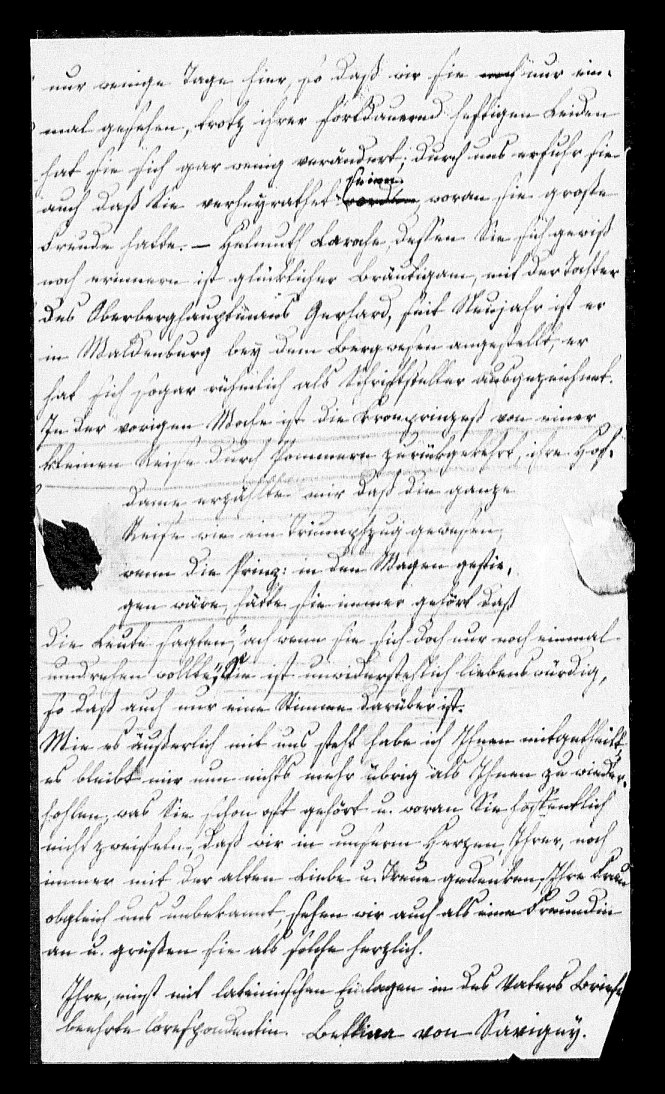 nur wenige Tage hier, so daß wir sie noch nur ein-
mal gesehen, trotz ihrer fortdauernd heftigen Leiden
hat sie sich gar wenig verändert; durch uns erfuhr sie
auch daß Sie verheyrathet seien worden, woran sie große
Freude hatte. – Helmuth Laroche, dessen Sie sich gewiß
noch erinnern ist glücklicher Bräutigam, mit der Tochter
des Oberberghauptmanns Gerhard, seit Neujahr ist er
in Waldenburg bey dem Bergwesen angestellt, er
hat sich sogar rühmlich als Schriftsteller ausgezeichnet.
In der vorigen Woche ist die Kronprinzeß von einer
kleinen Reise durch Pommern zurückgekehrt, ihre Hof-
dame erzählte mir daß die ganze
Reise wie ein Triumphzug gewesen,
wenn die Prinz: in den Wagen gestie-
gen wäre, hätte sie immer gehört daß
die Leute sagten, "ach wenn sie sich doch nur noch einmal
umdrehen wollte", Sie ist unwiderstehlich liebenswürdig,
so daß auch nur eine Stimme darüber ist.
Wie es äußerlich mit uns steht habe ich Ihnen mitgetheilt,
es bleibt mir nun nichts mehr übrig als Ihnen zu wieder-
hohlen, was Sie schon oft gehört u. woran Sie hoffentlich
nicht zweifeln, daß wir in unserm Herzen, Ihrer, noch
immer mit der alten Liebe u. Treue gedenken, Ihre Frau
obgleich uns unbekannt, sehen wir auch als eine Freundin
an u. grüßen sie als solche herzlich.
Ihre, einst mit lateinischen Einlagen in des Vaters Briefe
beehrte Corespondentin. Bettina von Savigny.